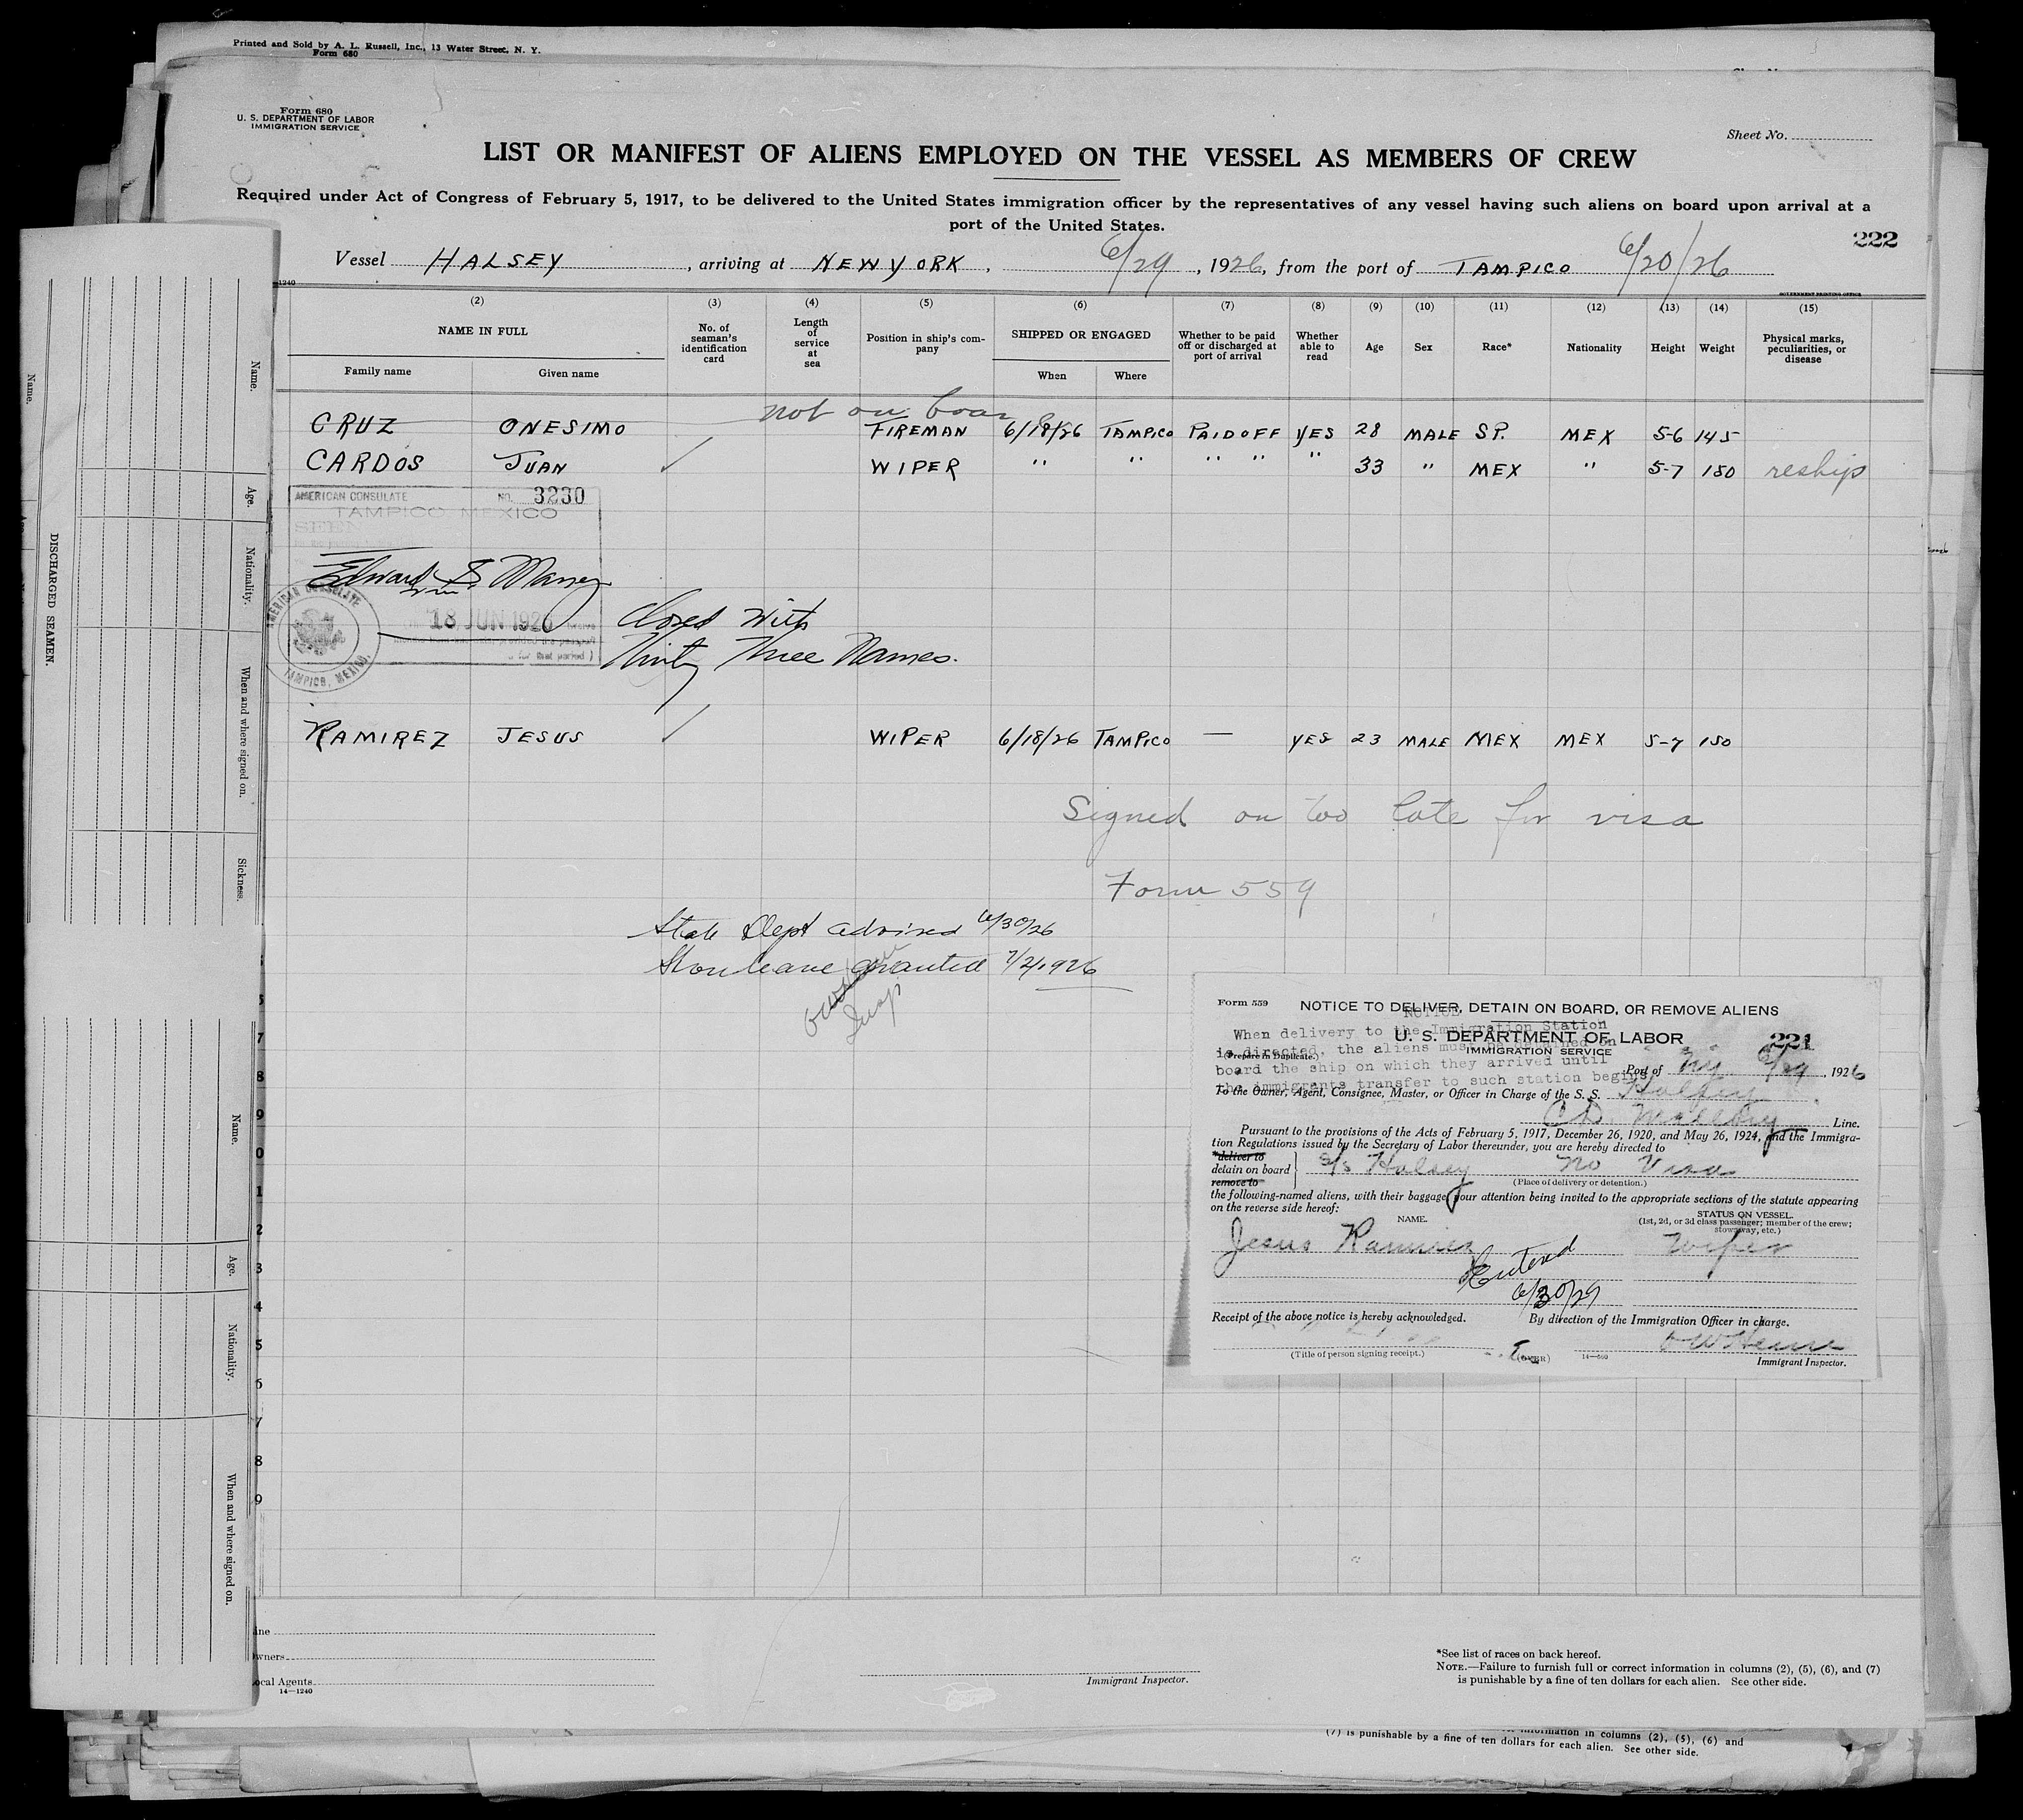 Printed and Sold by A. L. Russell, Inc., 13 Water Street, N. Y.
Form 680
Form 680
U. S. DEPARTMENT OF LABOR
IMMIGRATION SERVICE
Sheet No.
LIST OR MANIFEST OF ALIENS EMPLOYED ON THE VESSEL AS MEMBERS OF CREW
Required under Act of Congress of February 5, 1917, to be delivered to the United States immigration officer by the representatives of any vessel having such aliens on board upon arrival at a
port of the United States.
222
Vessel HALSEY, arriving at NEW YORK, 6/29, 1926, from the port of TAMPICO 6/20/26
1240
GOVERNMENT PRINTING OFFICE
(2) (3) (4) (5) (6) (7) (8) (9) (10) (11) (12) (13) (14) (15)
NAME IN FULL
Family name Given name
No. of seaman's identification card
Length of service at sea
Position in ship's company
SHIPPED OR ENGAGED
When Where
Whether to be paid off or discharged at port of arrival
Whether able to read
Age
Sex
Race*
Nationality
Height
Weight
Physical marks, peculiarities, or disease
not on boar
CRUZ ONESIMO FIREMAN 6/18/26 TAMPICO PAID OFF YES 28 MALE SP. MEX 5-6 145
CARDOS JUAN / WIPER " " " " " 33 " MEX " 5-7 150 reship
AMERICAN CONSULATE NO. 3230
TAMPICO MEXICO
SEEN
18 JUN 1926
AMERICAN CONSULATE
TAMPICO, MEXICO.
Closed with
Thirty Three Names.
RAMIREZ JESUS / WIPER 6/18/26 TAMPICO — YES 23 MALE MEX MEX 5-7 150
Signed on too late for visa
Form 559
State Dept advised 6/30/26
Shore leave granted 7/2/1926
Insp
Form 559
NOTICE TO DELIVER, DETAIN ON BOARD, OR REMOVE ALIENS
NOTICE
When delivery to the Immigration Station
is directed, the aliens must be detained on
board the ship on which they arrived until
the immigrants transfer to such station begins
U. S. DEPARTMENT OF LABOR
IMMIGRATION SERVICE
221
(Prepare in Duplicate.)
Port of NY 6/29, 1926
To the Owner, Agent, Consignee, Master, or Officer in Charge of the S. S. Halsey
C D Mallory Line.
Pursuant to the provisions of the Acts of February 5, 1917, December 26, 1920, and May 26, 1924, and the Immigra-
tion Regulations issued by the Secretary of Labor thereunder, you are hereby directed to
*deliver to
detain on board
remove to
S/S Halsey No Visa
(Place of delivery or detention.)
the following-named aliens, with their baggage, your attention being invited to the appropriate sections of the statute appearing
on the reverse side hereof:
NAME.
STATUS ON VESSEL.
(1st, 2d, or 3d class passenger; member of the crew;
stowaway, etc.)
Jesus Ramirez Wiper
Entered
6/30/29
Receipt of the above notice is hereby acknowledged. By direction of the Immigration Officer in charge.
(Title of person signing receipt.) (OVER) 14—560
Immigrant Inspector.
Name.
Age.
Nationality.
When and where signed on.
Sickness.
DISCHARGED SEAMEN.
Name.
Name.
Age.
Nationality.
When and where signed on.
Owners
Local Agents
14—1240
Immigrant Inspector.
*See list of races on back hereof.
NOTE.—Failure to furnish full or correct information in columns (2), (5), (6), and (7)
is punishable by a fine of ten dollars for each alien. See other side.
information in columns (2), (5), (6) and
(7) is punishable by a fine of ten dollars for each alien. See other side.